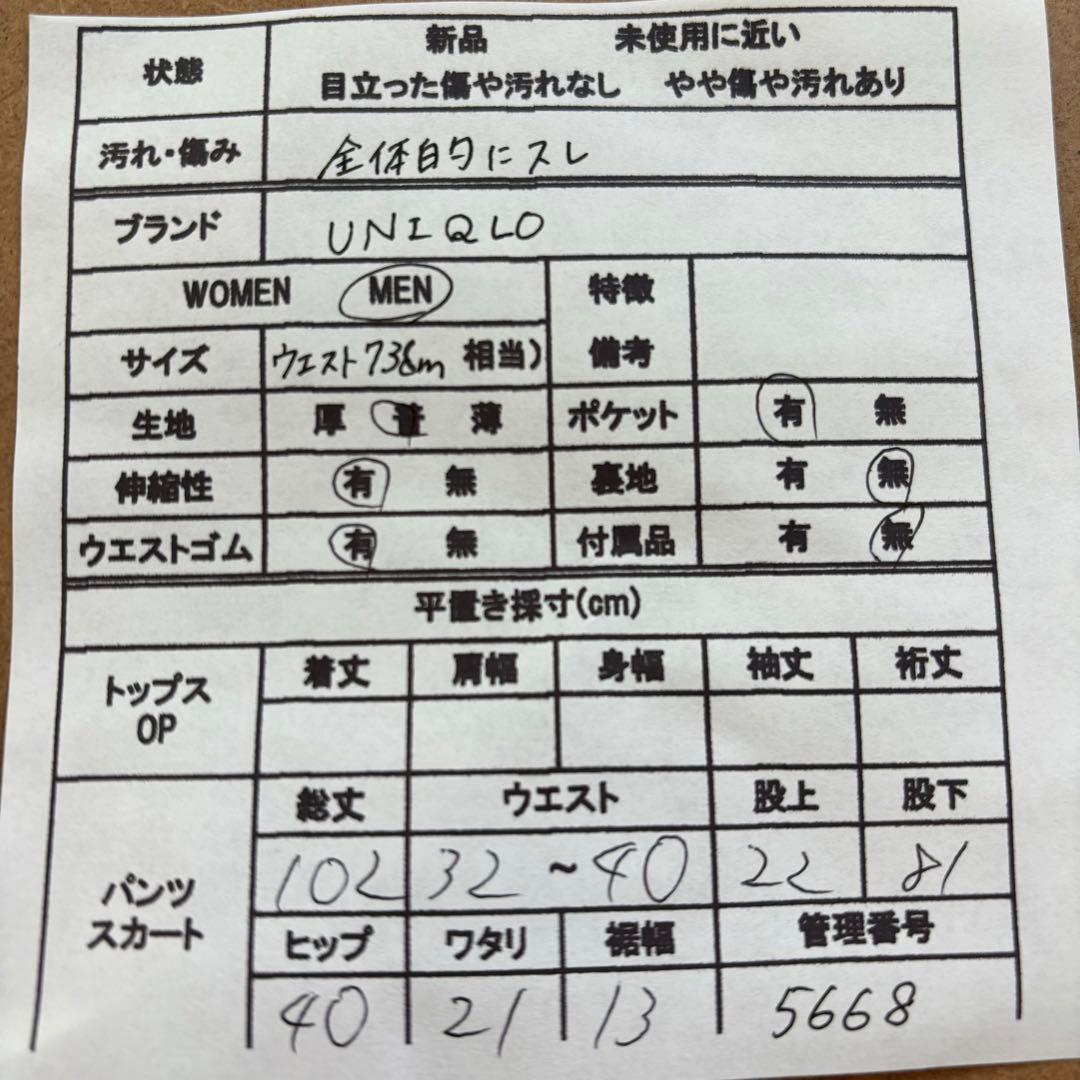 状態 新品 未使用に近い
目立った傷や汚れなし やや傷や汚れあり
汚れ・傷み 全体的にスレ
ブランド UNIQLO
WOMEN MEN 特徴
備考
サイズ ウエスト73cm 相当)
生地 厚 普 薄 ポケット 有 無
伸縮性 有 無 裏地 有 無
ウエストゴム 有 無 付属品 有 無
平置き採寸(cm)
トップス OP 着丈 肩幅 身幅 袖丈 裄丈
パンツ スカート 総丈 ウエスト 股上 股下
102 32 ~ 40 22 81
ヒップ ワタリ 裾幅 管理番号
40 21 13 5668